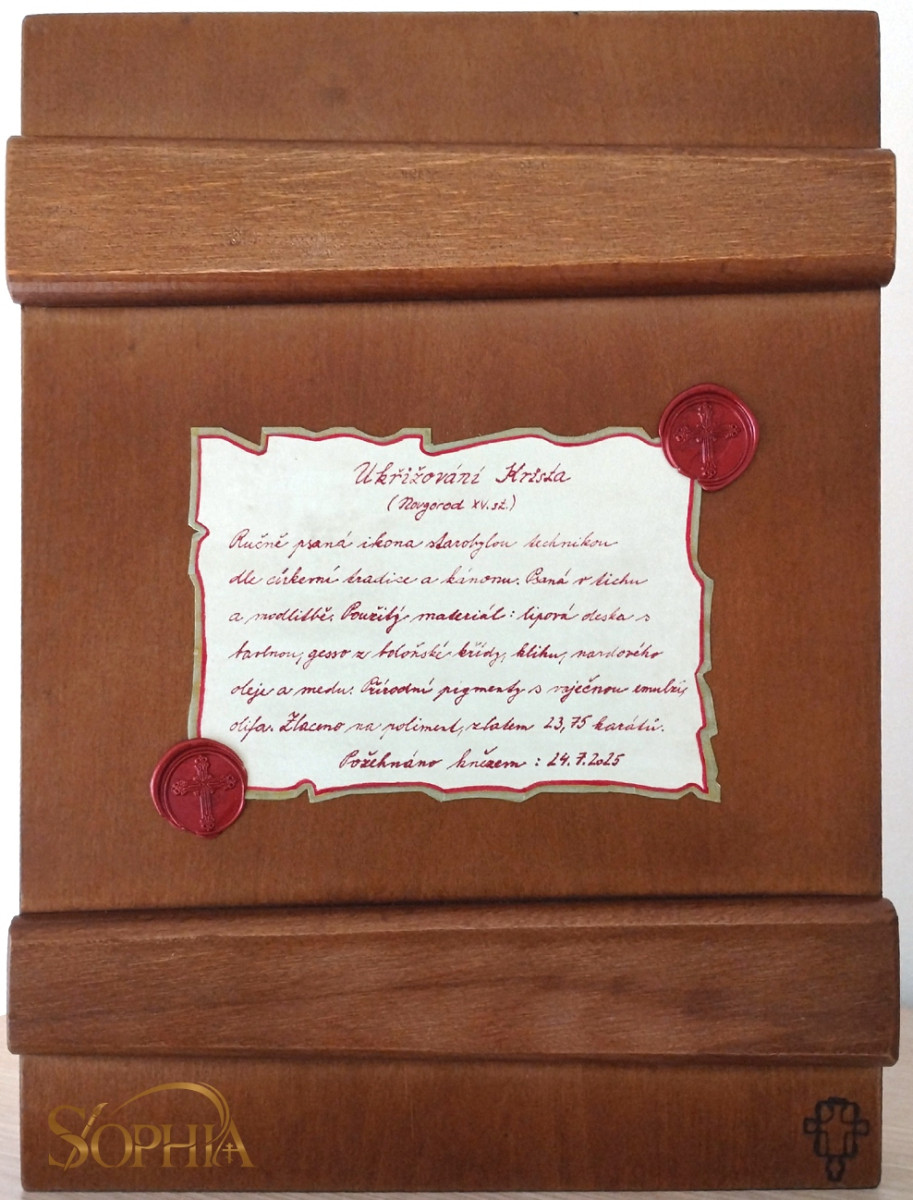 Ukřižování Krista
(Novgorod XV. st.)
Ručně psaná ikona starobylou technikou
dle církevní tradice a kánonu. Psaná v tichu
a modlitbě. Použitý materiál: lipová deska s
bavlnou, gesso z boloňské křídy, klihu, nardového
oleje a medu. Přírodní pigmenty s vaječnou emulzí,
olifa. Zlaceno na poliment, zlatem 23,75 karátů.
Požehnáno knězem: 24.7.2025
SOPHIA